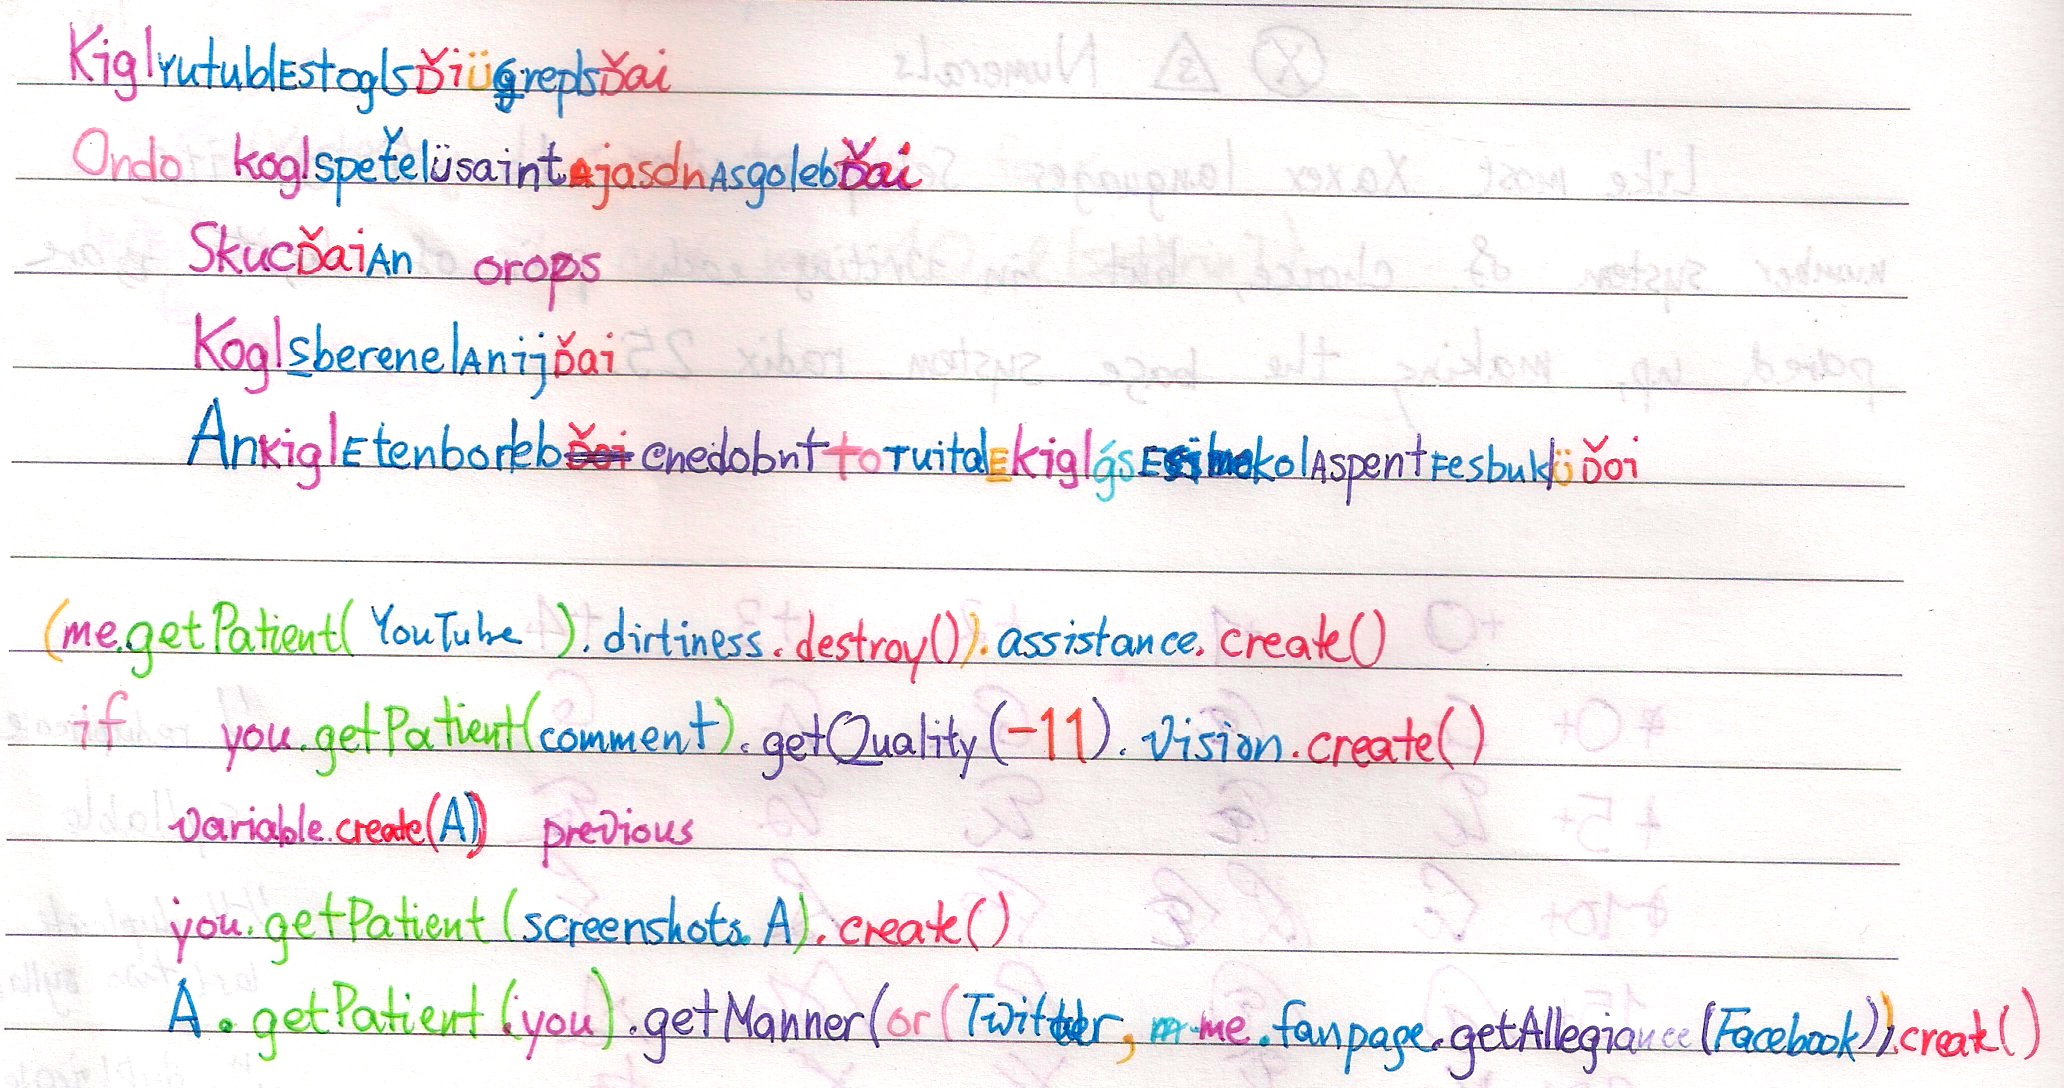 KiglYutublEstoglsĎiüğreplsĎai
Ondo koglspeťelüsaintAjasdnAsgolebĎai
SkucĎaiAn orops
KoglsberenelAnijĎai
(me.getPatient(YouTube).dirtiness.destroy()).assistance.create()
if you.getPatient(comment).getQuality(-11).Vision.create()
variable.create(A) previous
you.getPatient(screenshots.A).create()
A.getPatient(you).getManner(or(Twitter, me.fanpage.getAllegiance(Facebook)).create()